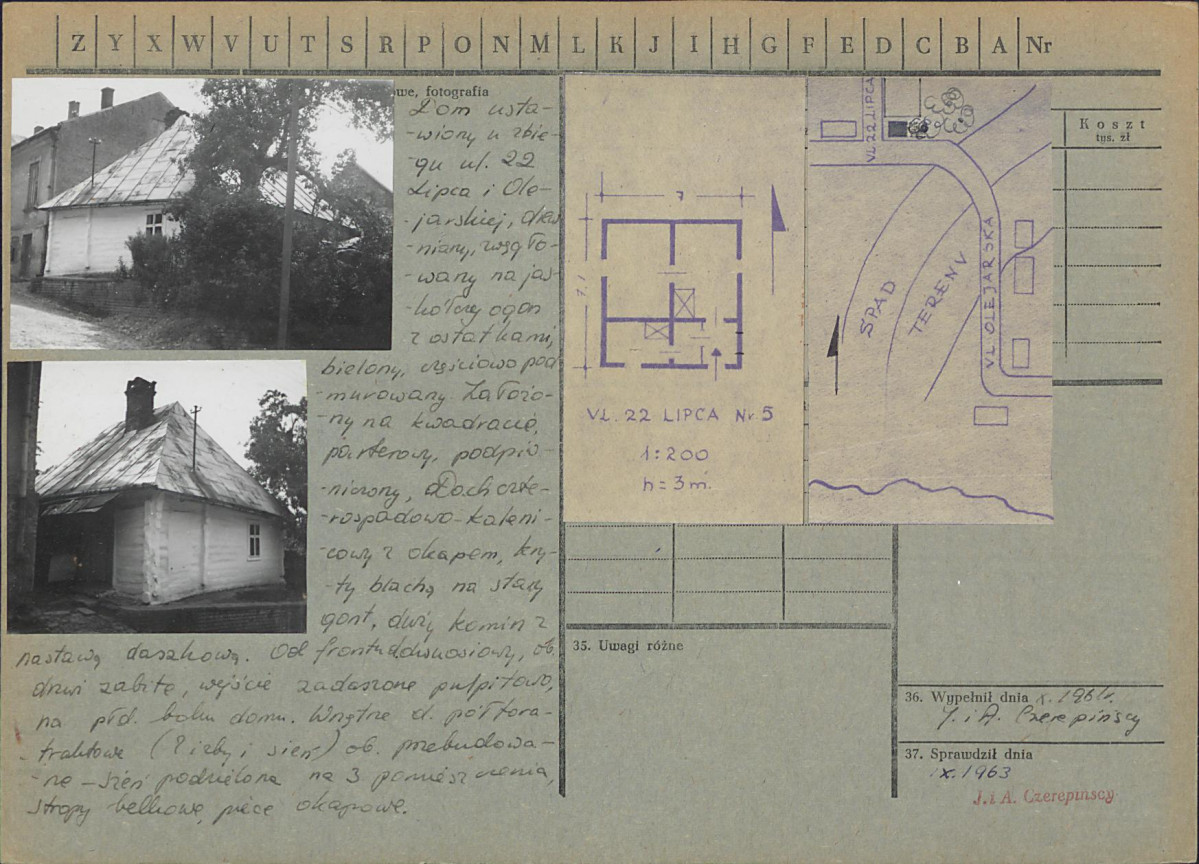 Z Y X W V U T S R P O N M L K J I H G F E D C B A Nr
we, fotografia
Dom usta-
-wiony u zbie-
-gu ul. 22
Lipca i Ole-
-jarskiej, drew
-niany, węgło-
-wany na jas-
-kółczy ogon
z ostatkami,
bielony, częściowo pod
-murowany. Założo-
-ny na kwadracie,
parterowy, podpiw-
-niczony, Dach czte-
-rospadowo-kaleni-
-cowy z okapem, kry-
-ty blachą na stary
gont, duży komin z
nastawą daszkową. Od frontu dwuosiowy, ob.
drzwi zabite, wejście zadaszone pulpitowo,
na płd. boku domu. Wnętrze d. półtora-
-traktowe (2 izby i sień) ob. przebudowa-
-ne - sień podzielona na 3 pomieszczenia,
stropy belkowe, piece okapowe.
7
7.1
UL. 22 LIPCA Nr 5
1:200
h = 3 m.
UL. 22 LIPCA
SPAD
TERENU
UL OLEJARSKA
Koszt
tys. zł
35. Uwagi różne
36. Wypełnił dnia x. 1961r.
J. i A. Czerepińscy
37. Sprawdził dnia
IX. 1963
J. i A. Czerepińscy